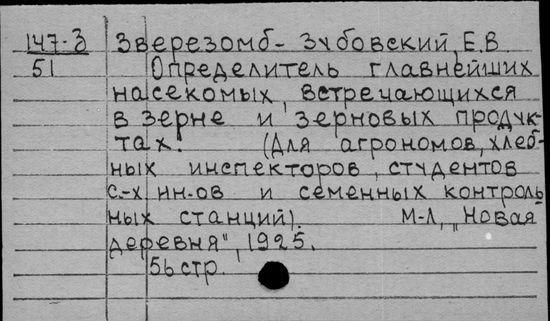 147-З Зверезомб-Зубовский, Е.В.
51 Определитель главнейших
насекомых, встречающихся
в зерне и зерновых продук-
тах. (Для агрономов, хлеб-
ных инспекторов, студентов
с.-х. ин-ов и семенных контроль-
ных станций). М-Л, „Новая
деревня", 1925.
56 стр.